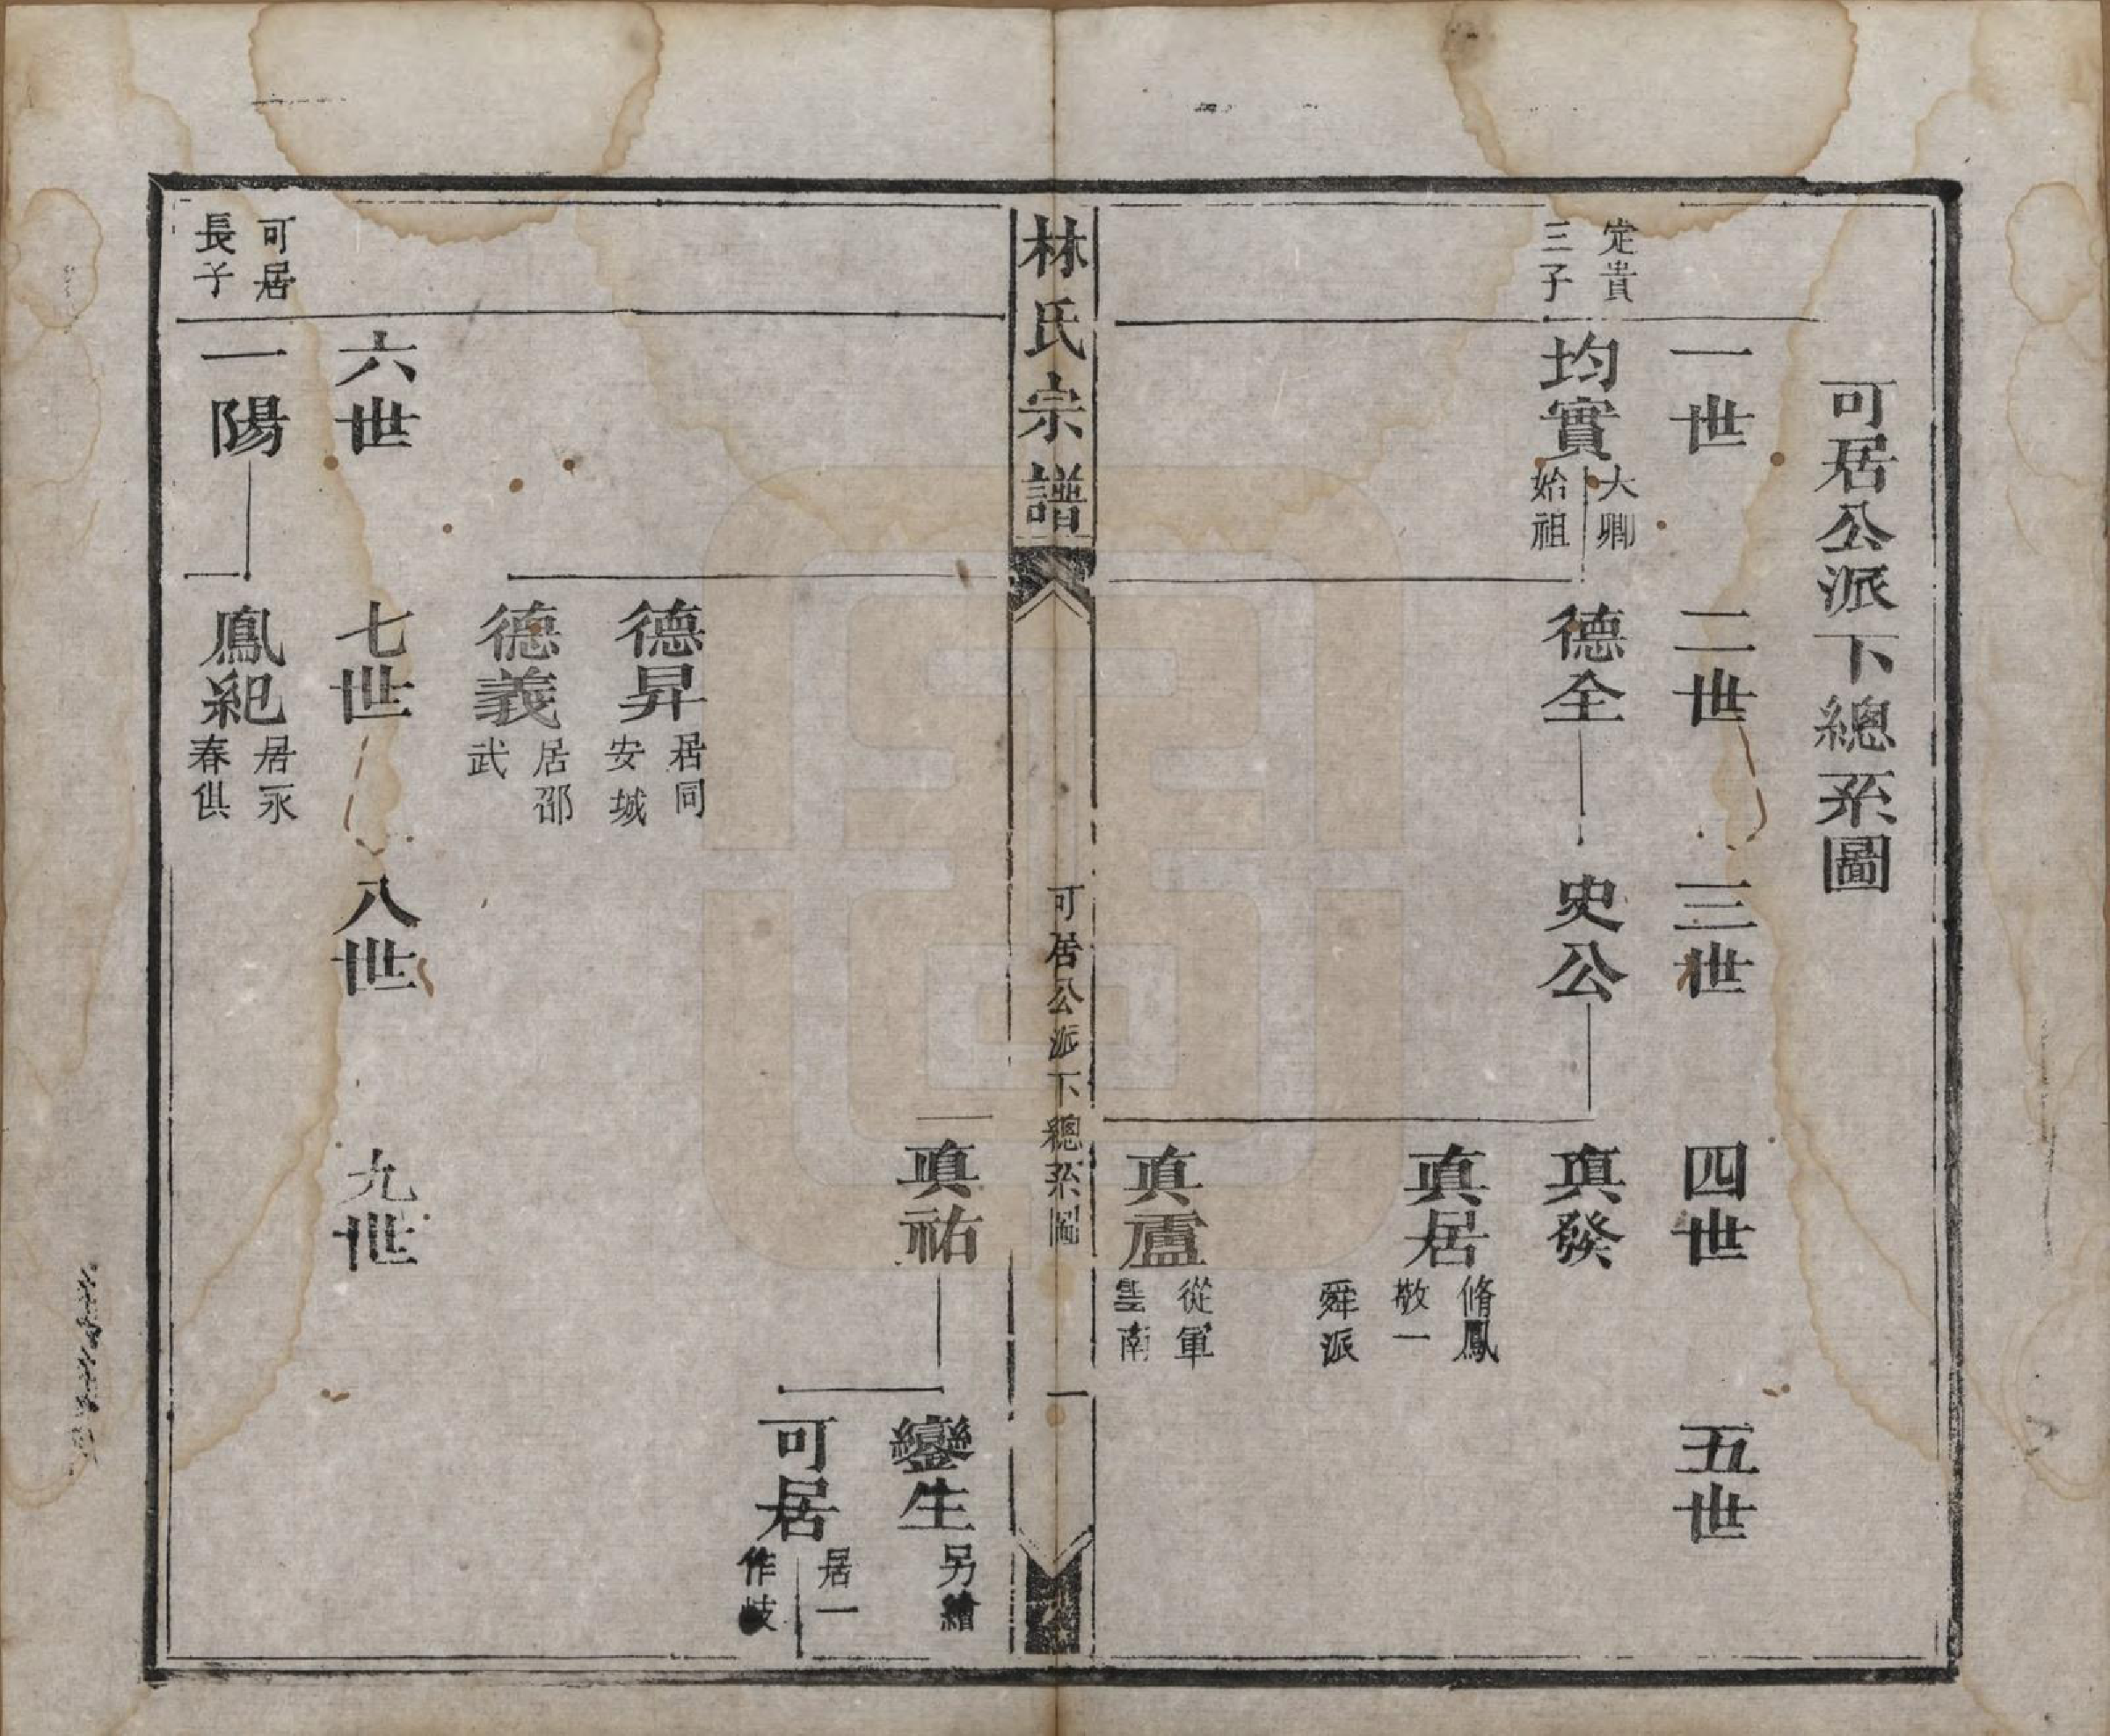 可居公派下總系圖
一世
二世
三世
四世
五世
定貴
三子
均實
大卿
始祖
德全
史公
眞發
眞居
脩鳳
敬一
舜派
眞盧
從軍
雲南
林氏宗譜
可居公派下總系圖
一
眞祐
鑾生
另繪
可居
居一
作岐
德昇
居同
安城
德義
居邵
武
六世
七世
八世
九世
可居
長子
一陽
鳳紀
居永
春倶